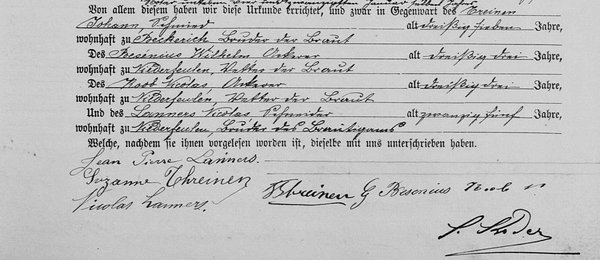 Von allem diesem haben wir diese Urkunde errichtet, und zwar in Gegenwart des Treinen
Johann, Schmied alt dreißig sieben Jahre,
wohnhaft zu Beckerich Bruder der Braut
Des Besenius Wilhelm Ackerer alt dreißig drei Jahre,
wohnhaft zu Niederfeulen, Vetter der Braut
Des Hood Nicolas, Ackerer alt dreißig drei Jahre,
wohnhaft zu Niederfeulen, Vetter der Braut
Und des Lanners Nicolas Schneider alt zwanzig fünf Jahre,
wohnhaft zu Niederfeulen, Bruder des Bräutigams
Welche, nachdem sie ihnen vorgelesen worden ist, dieselbe mit uns unterschrieben haben.
Jean Pierre Lanners.
Suzanne Threinen
Nicolas Lanners.
Threinen G Besenius Hood n